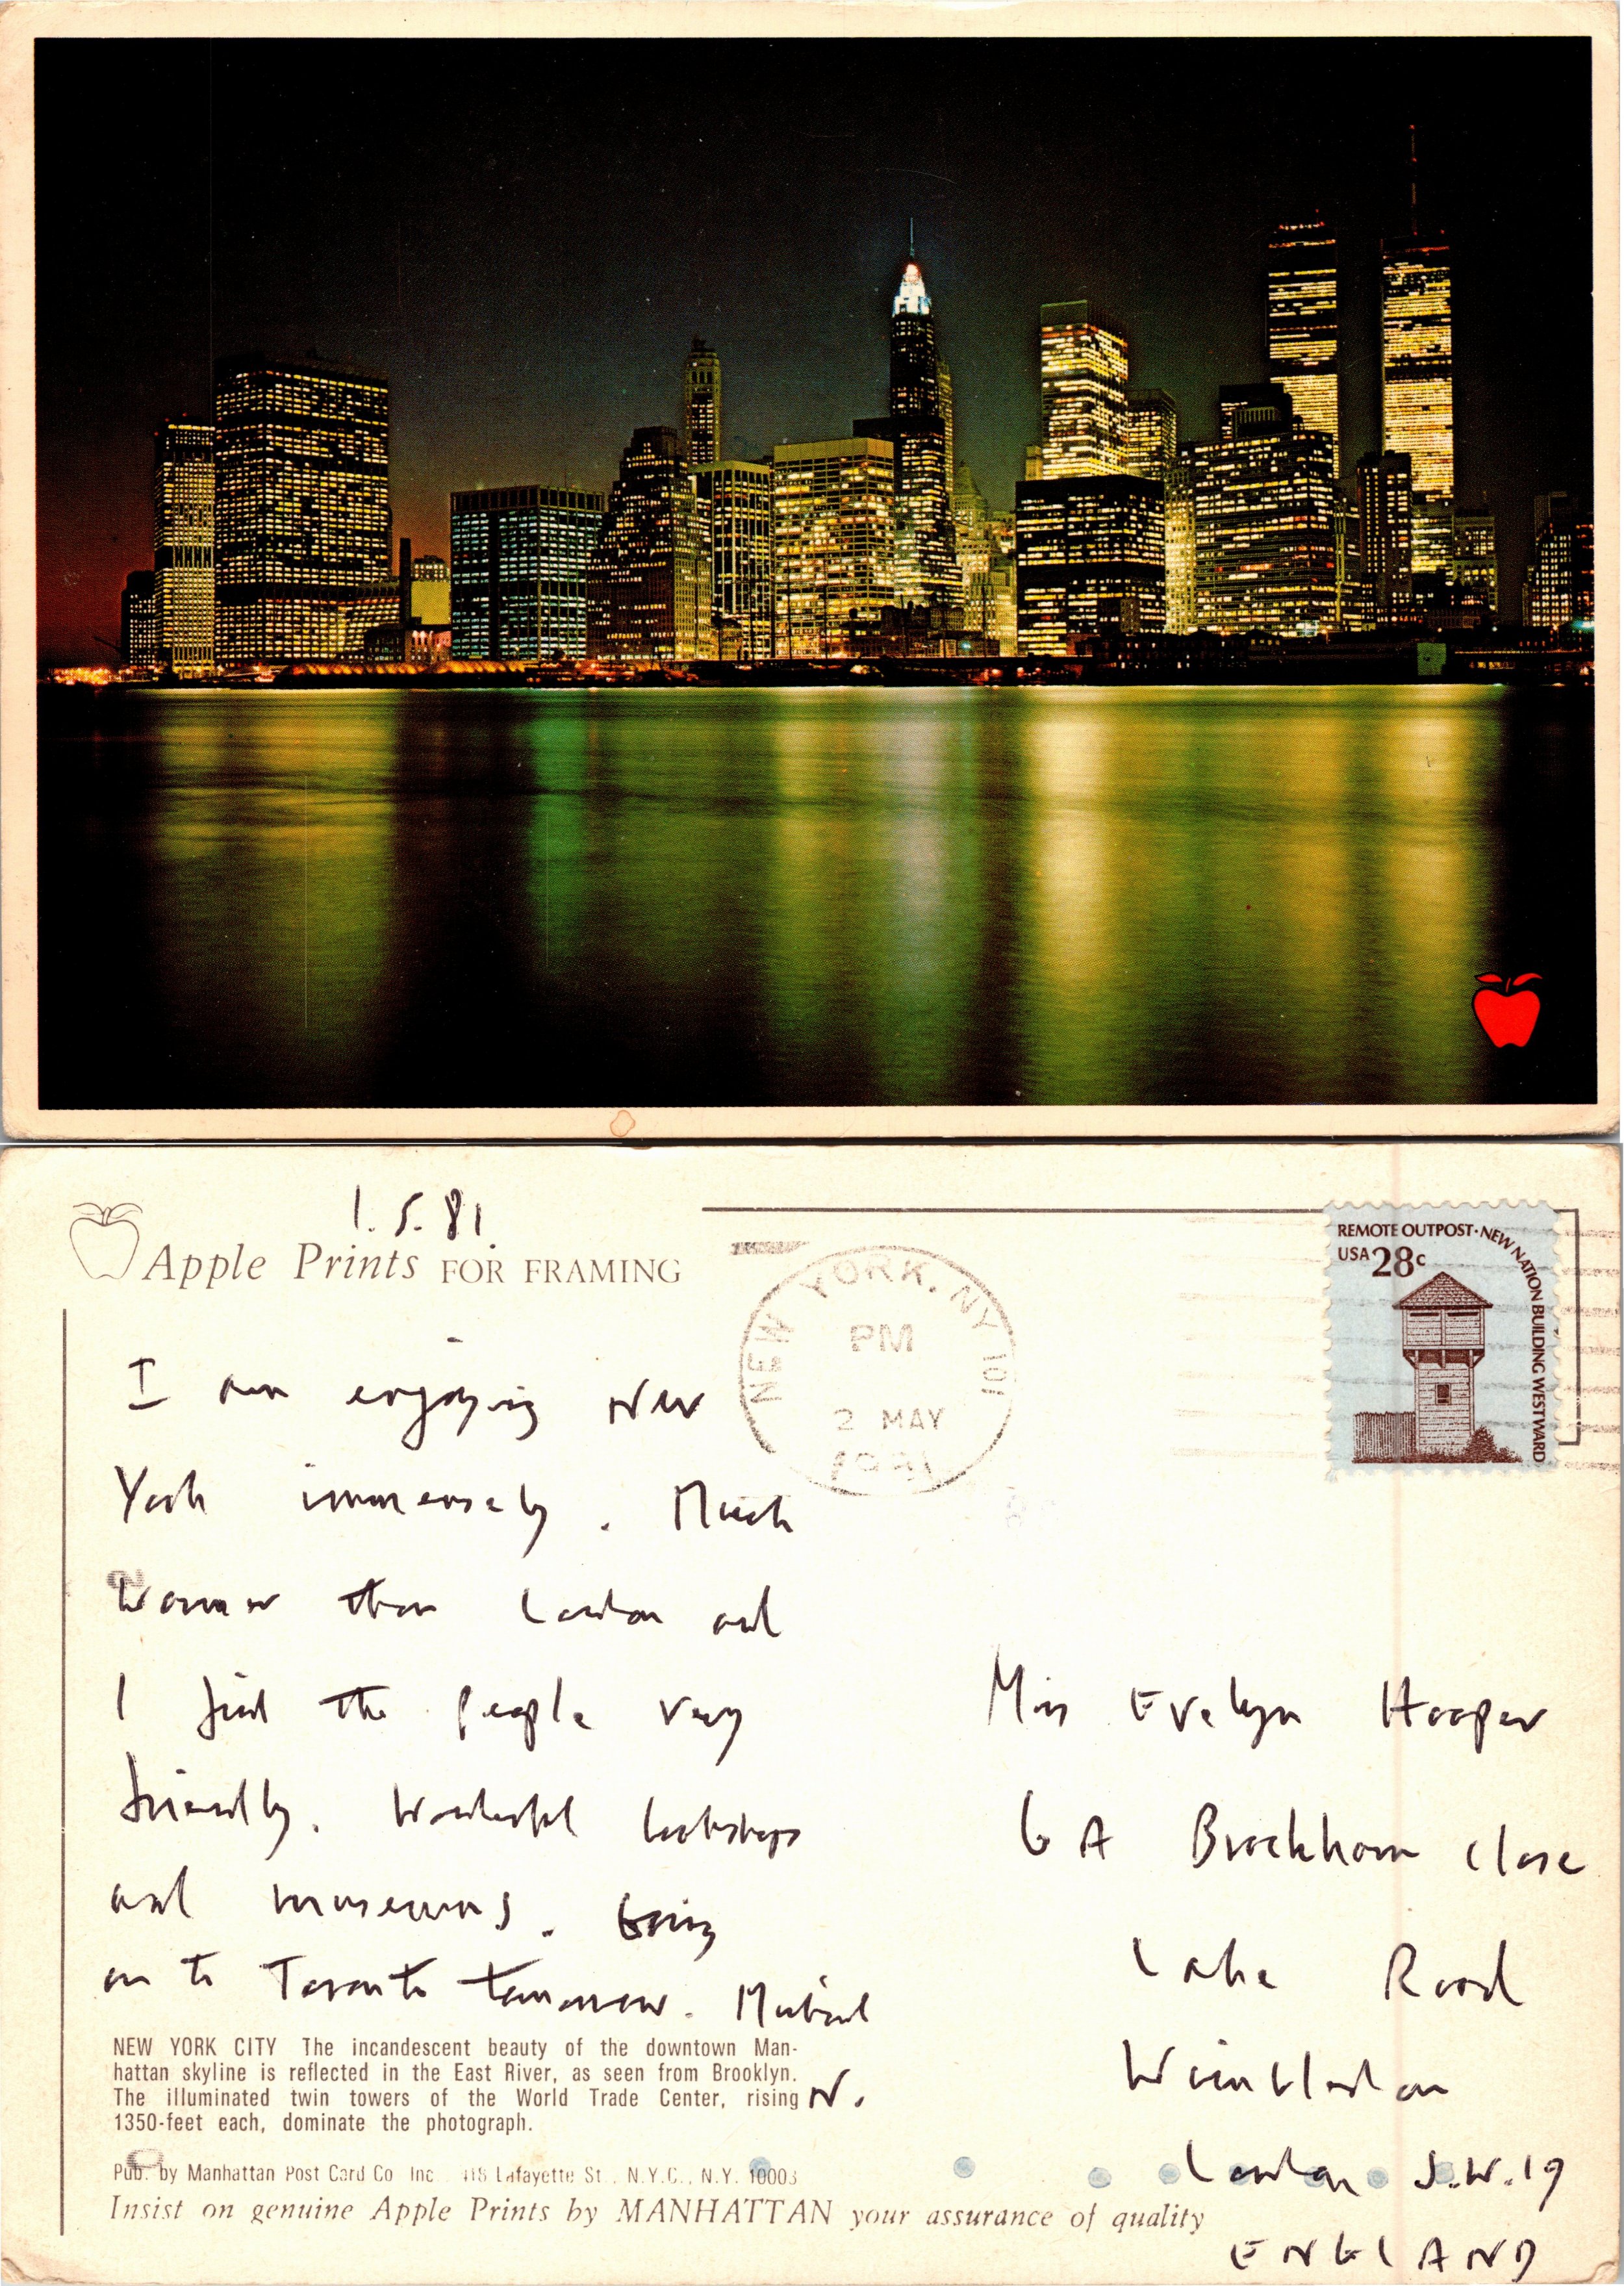 1.5.81.
Apple Prints FOR FRAMING
NEW YORK, NY 101
PM
2 MAY
1981
REMOTE OUTPOST · NEW NATION BUILDING WESTWARD
USA 28c
I am enjoying New
York immensely. Much
warmer than London and
I find the people very
friendly. Wonderful bookshops
and museums. Going
on to Toronto tomorrow. Michael
N.
Miss Evelyn Hooper
6A Brockham Close
Lake Road
Wimbledon
London S.W.19
ENGLAND
NEW YORK CITY The incandescent beauty of the downtown Man-
hattan skyline is reflected in the East River, as seen from Brooklyn.
The illuminated twin towers of the World Trade Center, rising
1350-feet each, dominate the photograph.
Pub. by Manhattan Post Card Co Inc. 418 Lafayette St., N.Y.C., N.Y. 10003
Insist on genuine Apple Prints by MANHATTAN your assurance of quality